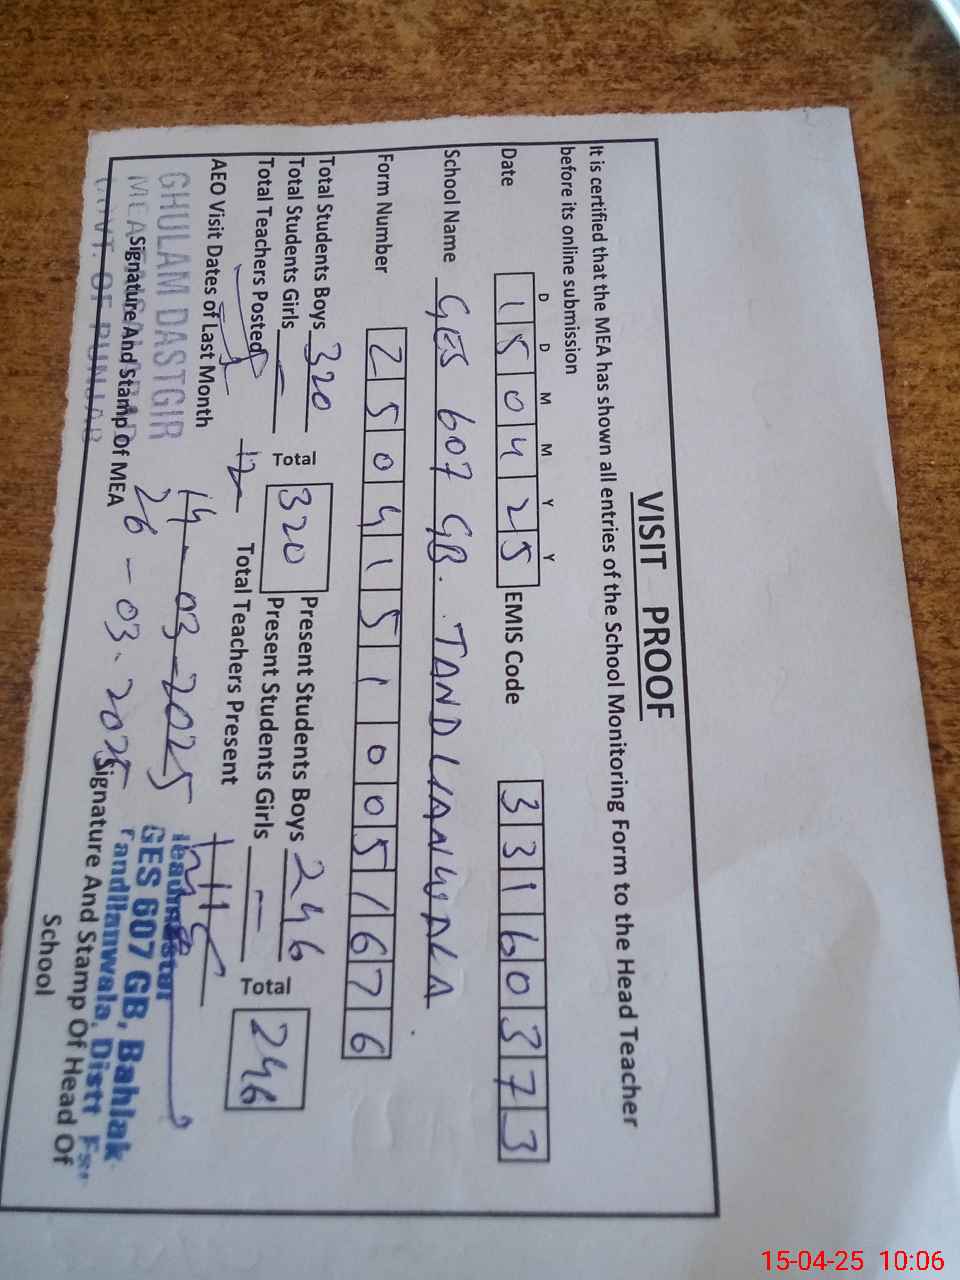 VISIT PROOF
It is certified that the MEA has shown all entries of the School Monitoring Form to the Head Teacher
before its online submission
D D M M Y Y
Date 150425 EMIS Code 33160373
School Name GES 607 GB. TANDLIANWALA
Form Number 2504151005/676
Total Students Boys 320 Total 320 Present Students Boys 246 Total 246
Total Students Girls — Present Students Girls —
Total Teachers Posted 12 Total Teachers Present
AEO Visit Dates of Last Month 14-03-2025
26-03-2025
GHULAM DASTGIR
MEA
GOVT. OF PUNJAB
Signature And Stamp Of MEA
Headmaster
GES 607 GB, Bahlak
Tandlianwala, Distt Fsd
Signature And Stamp Of Head Of
School
15-04-25 10:06